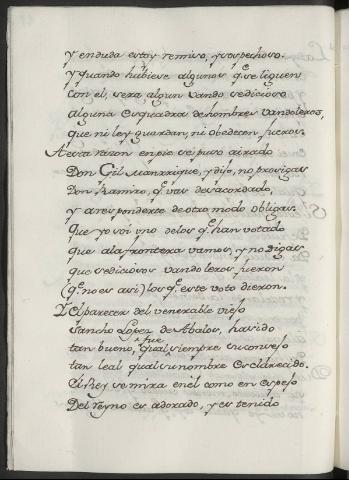 y enduda estoy remiso, y sospechoso.
y quando hubiese algunos q̃ se liguen
con el, sera algun vando sedicioso
alguna esquadra de hombres vandoleros,
que ni ley guardan, ni obedecen fueros.
A esta razon en pie se puso ayrado
Don Gil Manrrique, y dijo, no prosigas
Don Ramiro, q̃ vas desacordado,
y a responderte de otro modo obligas.
Que yo soi vno de los q̃ han votado
que ala frontera vamos, y no digas
que sediciosos vandoleros fueron
(q̃ no es asi) los q̃ este voto dieron.
Y el parecer del venerable viejo
Sancho Lopez de Abalos, ha sido
tan bueno, qual fue siempre su consejo
tan leal qual su nombre esclarecido.
El Rey se mira en el como en espejo
Del reyno es adorado, y es tenido